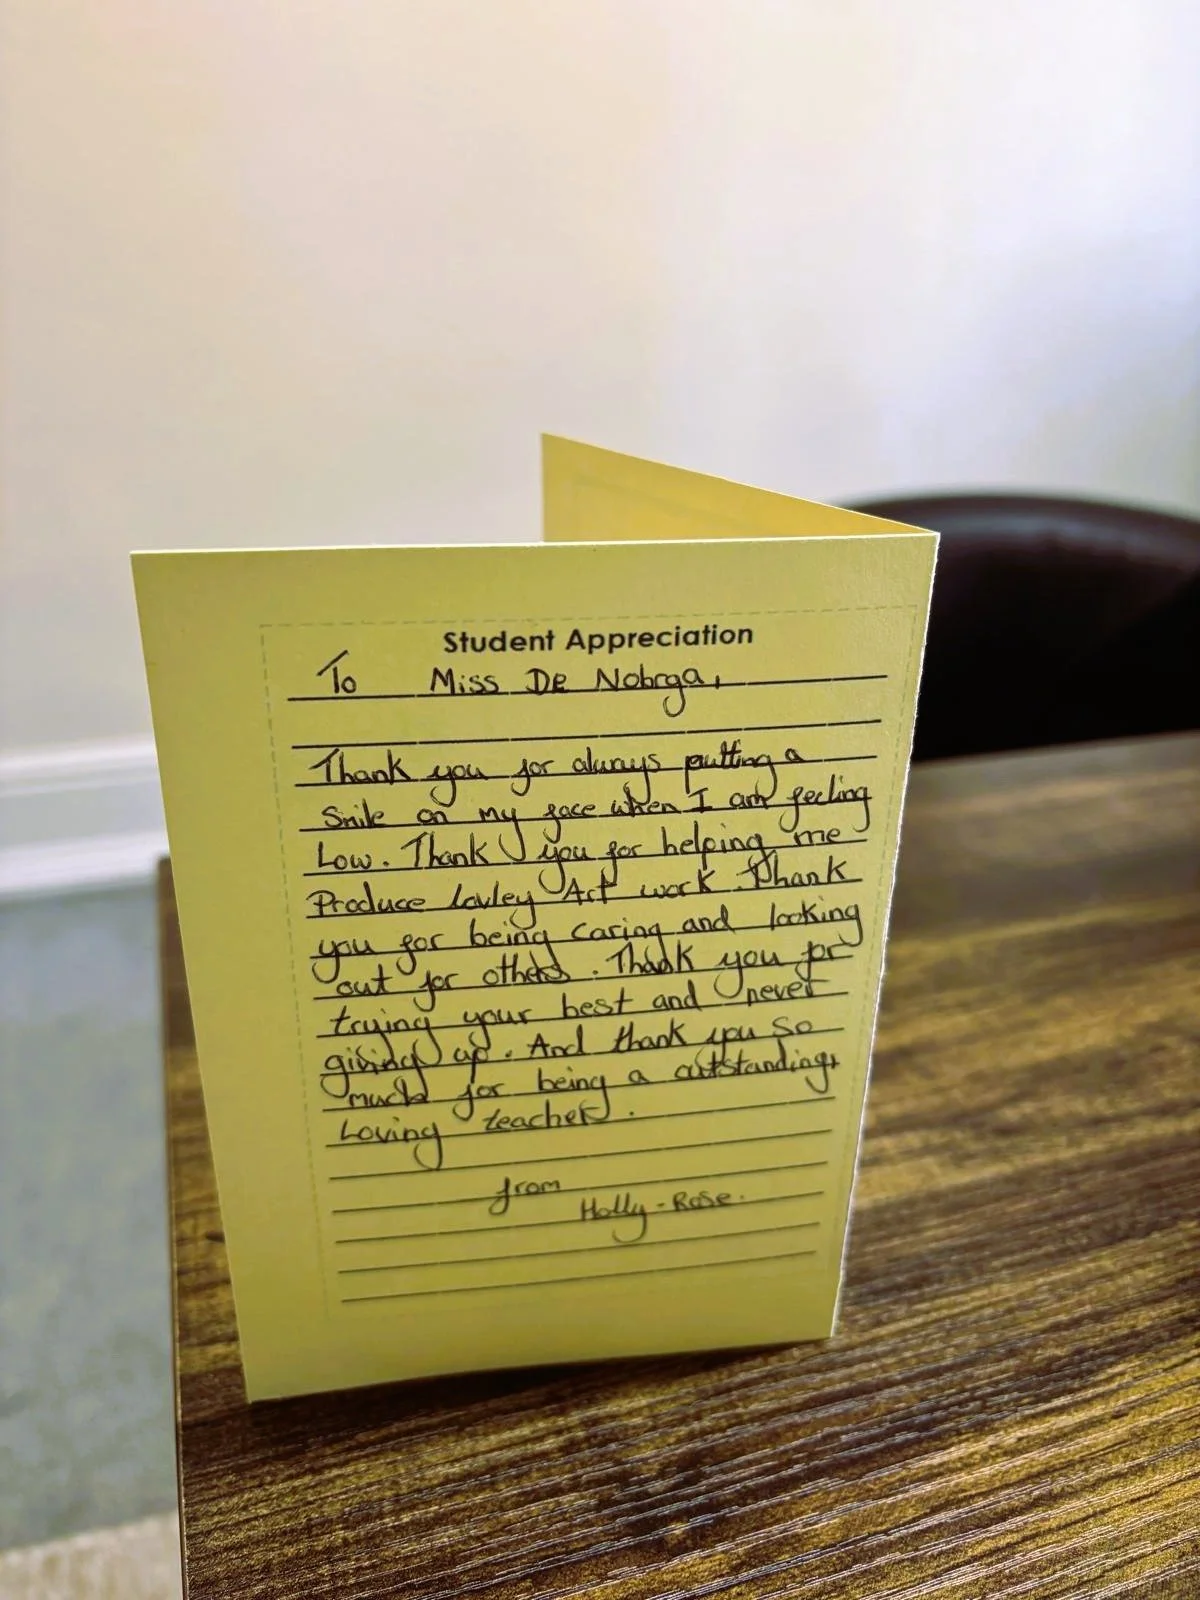 Student Appreciation
To Miss De Nobrga,
Thank you for always putting a
Smile on my face when I am feeling
Low. Thank you for helping me
Produce lovley Art work. Thank
you for being caring and looking
out for others. Thank you for
trying your best and never
giving up. And thank you so
much for being a outstanding,
Loving teacher.
from
Holly-Rose.